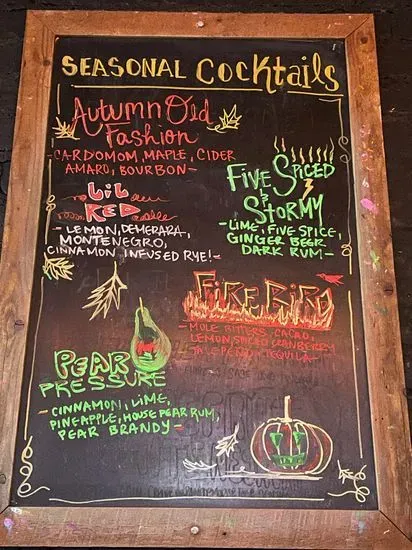 SEASONAL Cocktails
Autumn Old
Fashion
- CARDOMOM, MAPLE, CIDER
AMARO, BOURBON -
Five Spiced
&
STORMY
- LIME, FIVE SPICE,
GINGER BEER
DARK RUM -
LIL
RED
- LEMON, DEMERARA,
MONTENEGRO,
CINNAMON INFUSED RYE! -
FIRE BIRD
- MOLE BITTERS, CACAO,
LEMON, SPICED CRANBERRY
JALEPENO, TEQUILA -
PEAR
PRESSURE
- CINNAMON, LIME,
PINEAPPLE, HOUSE PEAR RUM,
PEAR BRANDY -